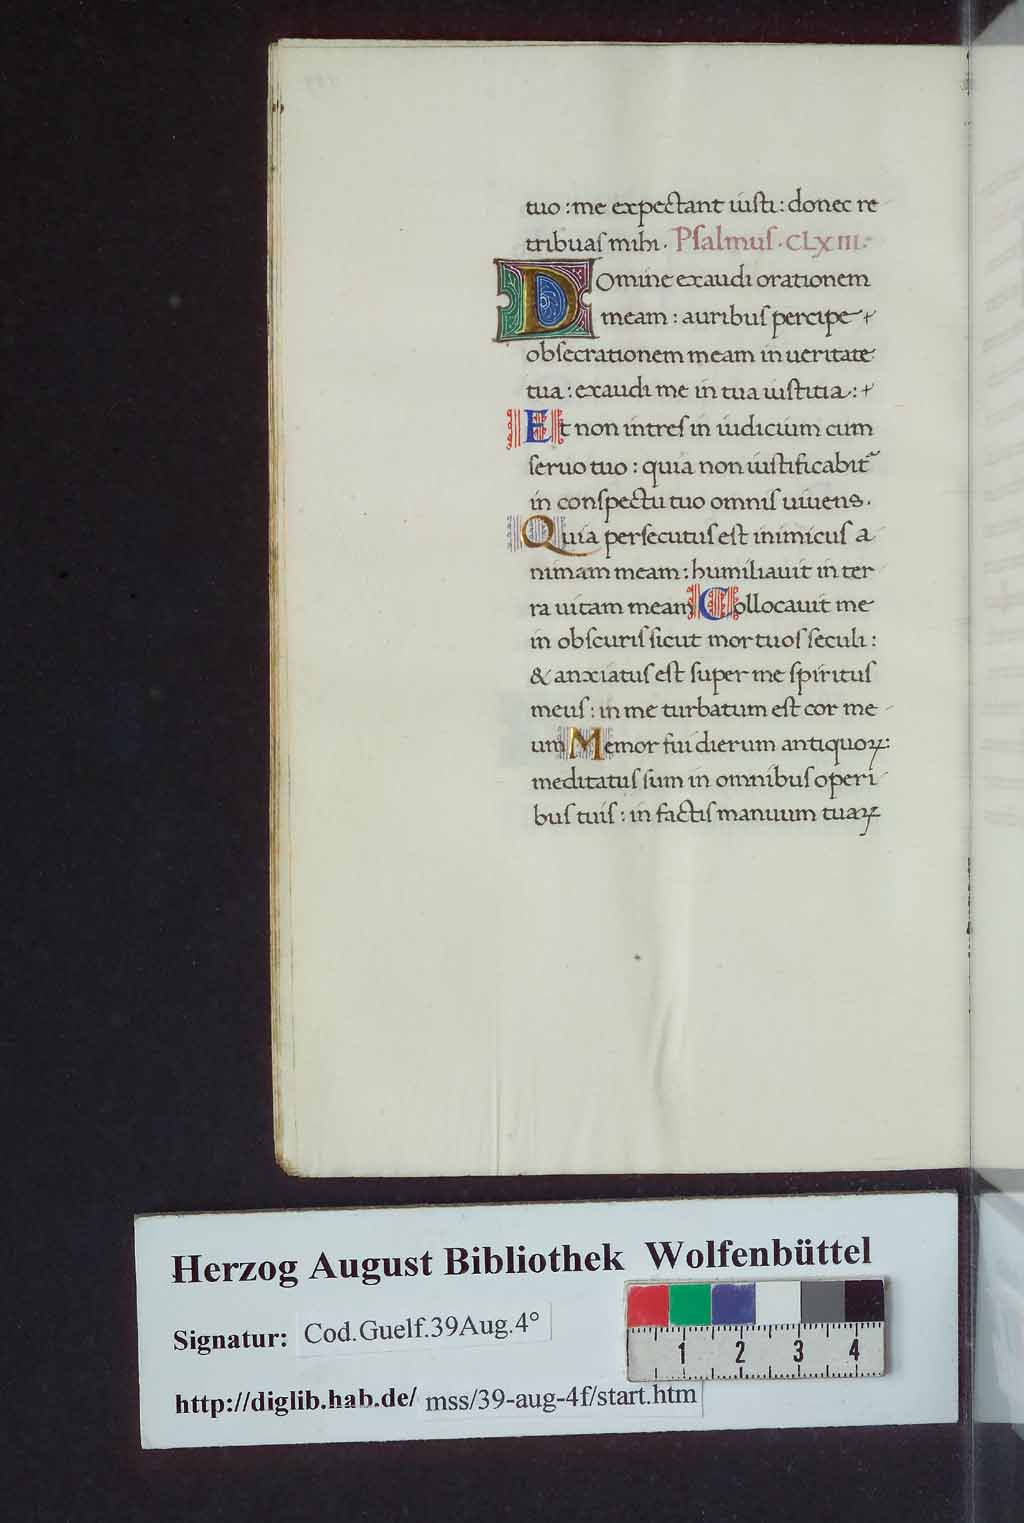 tuo : me expectant iusti : donec re
tribuas mihi . Psalmus . CLXIII .
Domine exaudi orationem
meam : auribus percipe
obsecrationem meam in ueritate
tua : exaudi me in tua iustitia :
Et non intres in iudicium cum
seruo tuo : quia non iustificabit᷑
in conspectu tuo omnis uiuens .
Quia persecutus est inimicus a
nimam meam : humiliauit in ter
ra uitam meam Collocauit me
in obscuris sicut mortuos seculi :
& anxiatus est super me spiritus
meus : in me turbatum est cor me
um Memor fui dierum antiquoꝝ :
meditatus sum in omnibus operi
bus tuis : in factis manuum tuaꝝ
Herzog August Bibliothek Wolfenbüttel
Signatur: Cod.Guelf.39Aug.4°
http://diglib.hab.de/ mss/39-aug-4f/start.htm
1 2 3 4